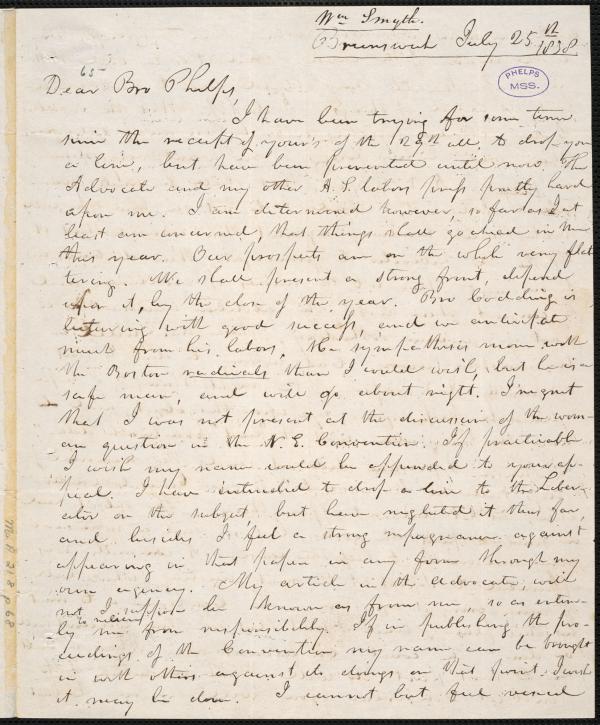 Wm Smyth.
Brunswick July 25th 1838
65
PHELPS MSS.
Dear Bro Phelps,
I have been trying for some time
since the receipt of your's of the ult. to drop you
a line, but have been prevented until now. The
Advocate and my other A. S. labors press pretty hard
upon me. I am determined however, so far as I at
least am concerned, that things shall go ahead in Me
this year. Our prospects are on the whole very flat
tering. We shall present a strong front, depend
upon it, by the close of the year. Bro Codding is
lecturing with good success, and we anticipate
much from his labors. He sympathises more with
the Boston radicals than I could wish, but he is a
safe man, and will go about right. I regret
that I was not present at the discussion of the wom-
an question in the N. E. Convention. If practicable
I wish my name could be appended to your ap-
peal. I have intended to drop a line to the Liber-
ator on the subject, but have neglected it thus far,
and besides I feel a strong repugnance against
appearing in that paper in any form through my
own agency. My article in the Advocate, will
not I suppose be known as from me, so as entire-
ly to relieve me from responsibility. If in publishing the pro-
ceedings of the Convention, my name can be brought
in with others against its doings on that point, I wish
it may be done. I cannot but feel vexed